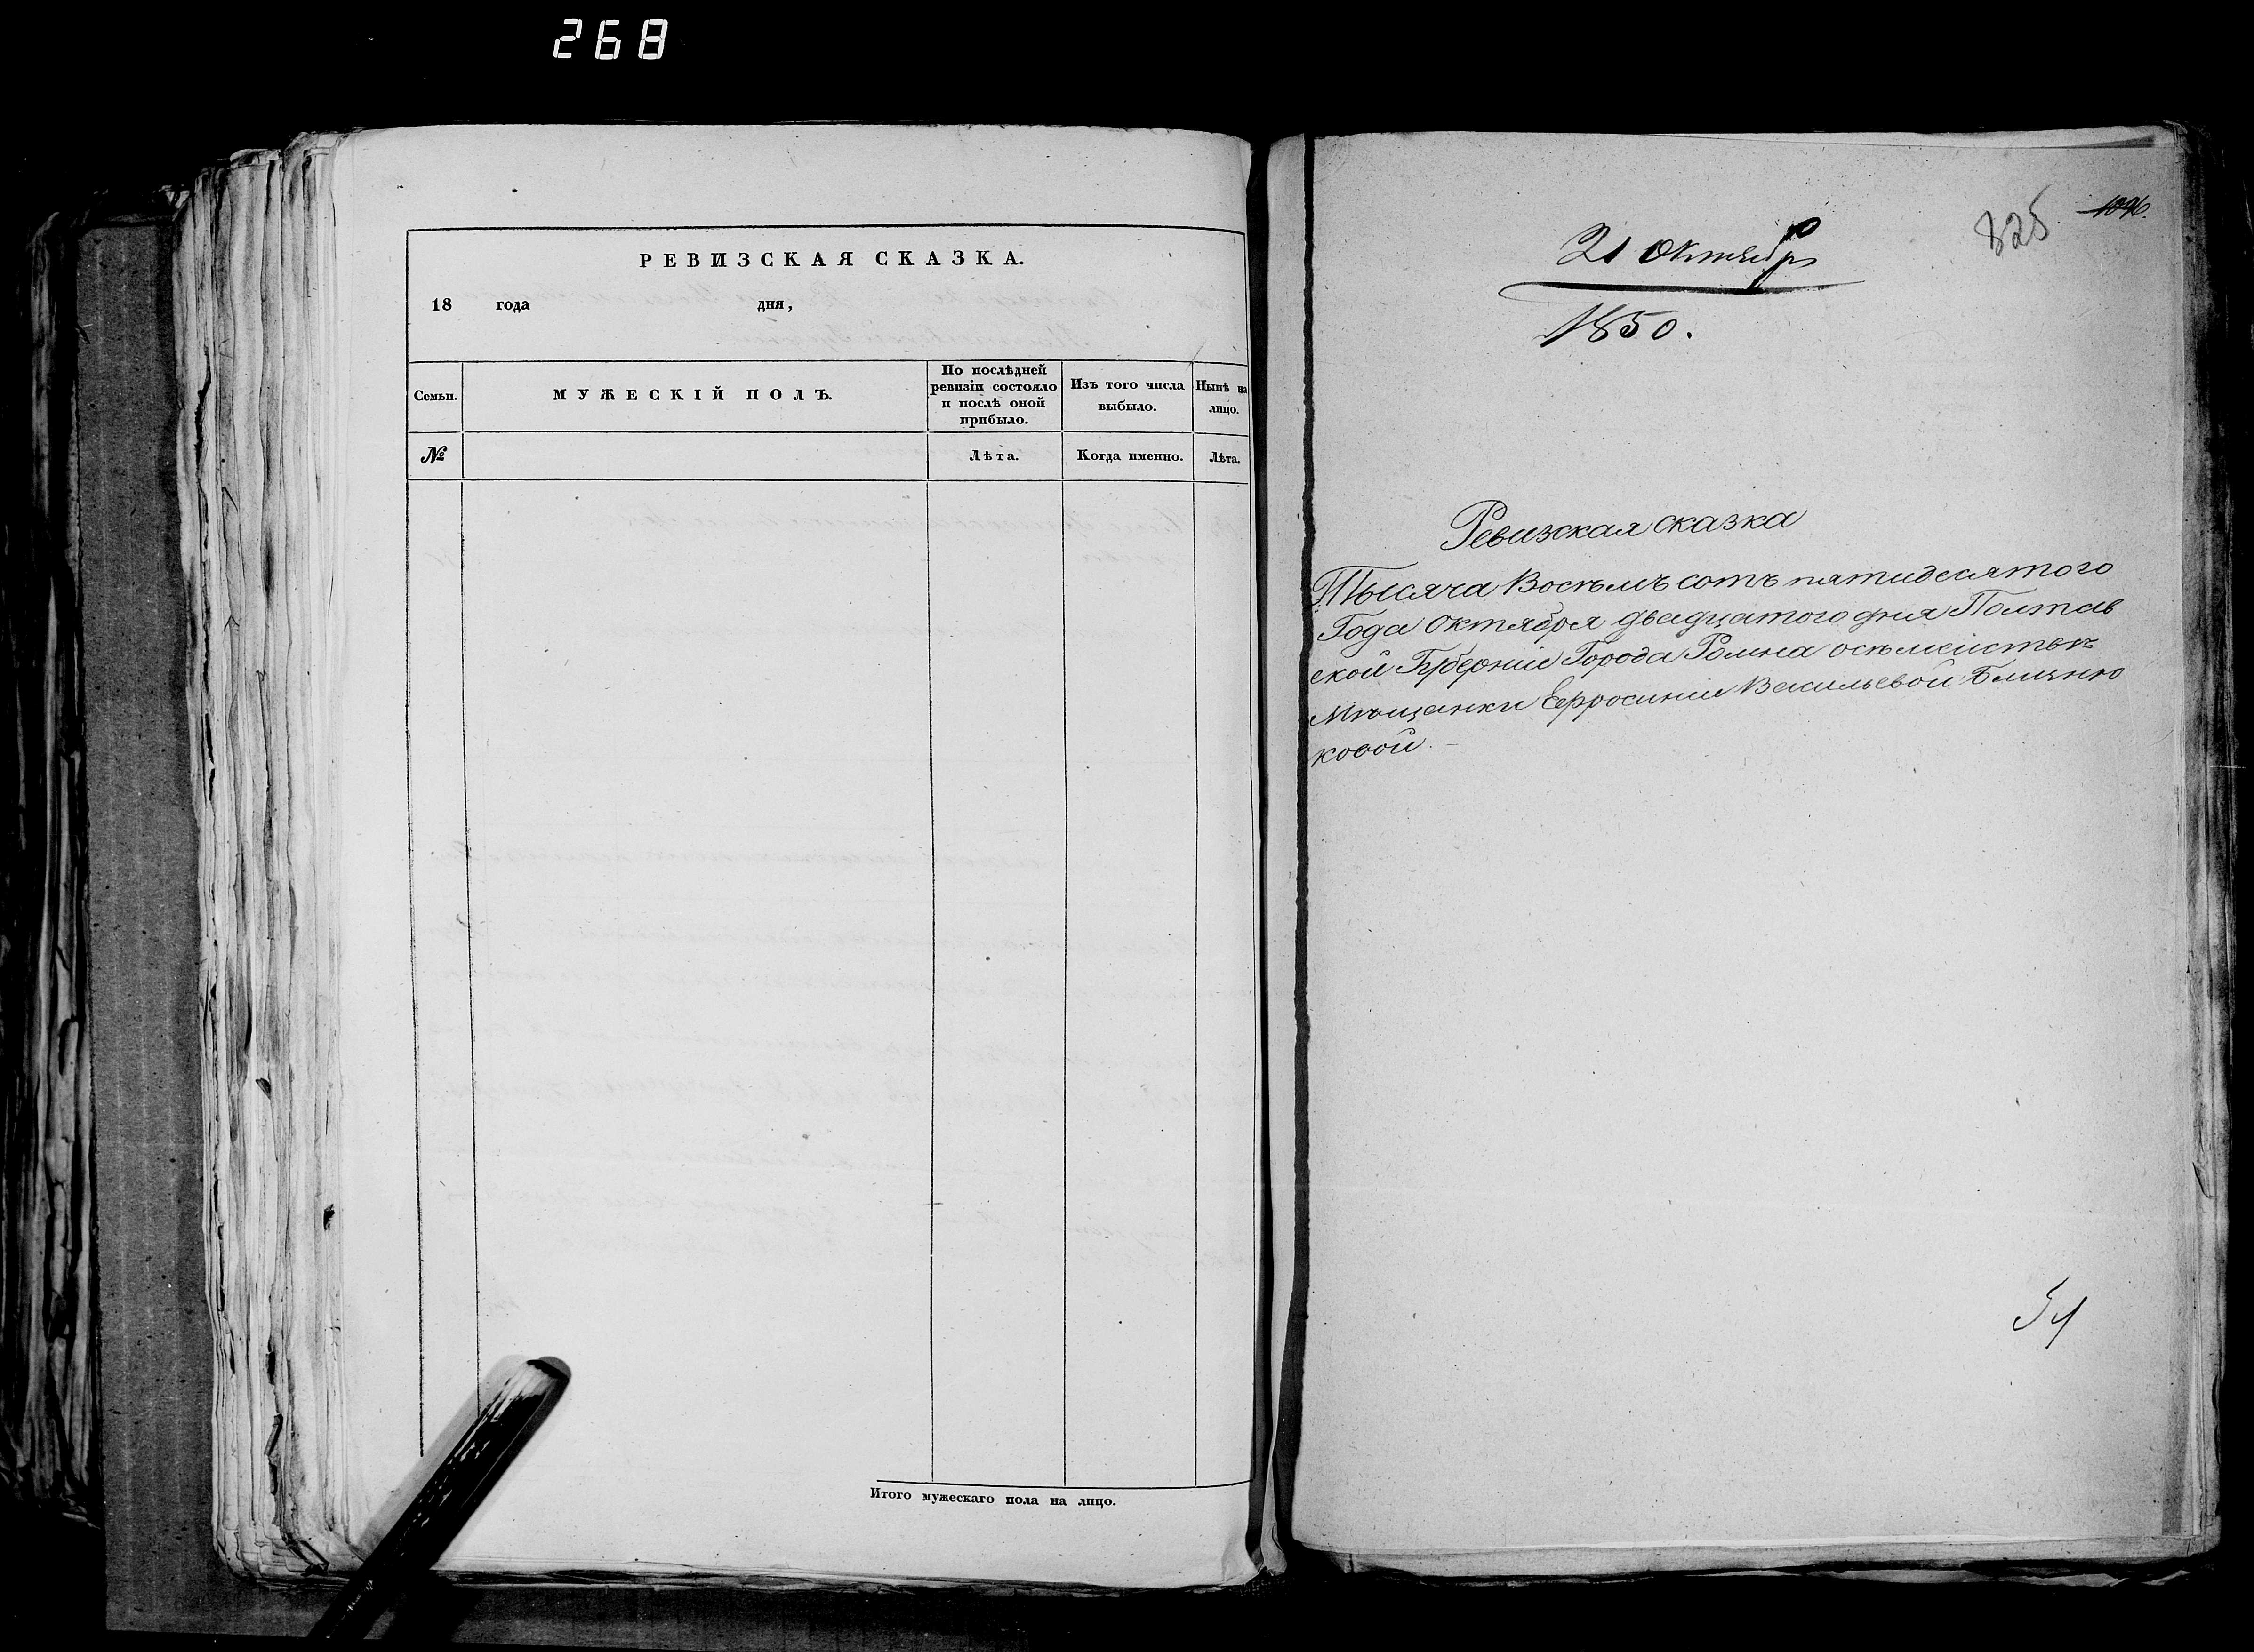 268
РЕВИЗСКАЯ СКАЗКА.
18 года дня,
Семьи.
МУЖЕСКІЙ ПОЛЪ.
По послѣдней
ревизіи состояло
и послѣ оной
прибыло.
Изъ того числа
выбыло.
Нынѣ на
лицо.
№
Лѣта.
Когда именно.
Лѣта.
Итого мужескаго пола на лицо.
825
21 Октября
1850.
Ревизская сказка
Тысяча Восемъ сотъ пятидесятого
Года Октября двадцатого дня Полтав
ской Губерніи Города Ромна
Мѣщанки Ефросиніи Васильевой Близню
ковой.